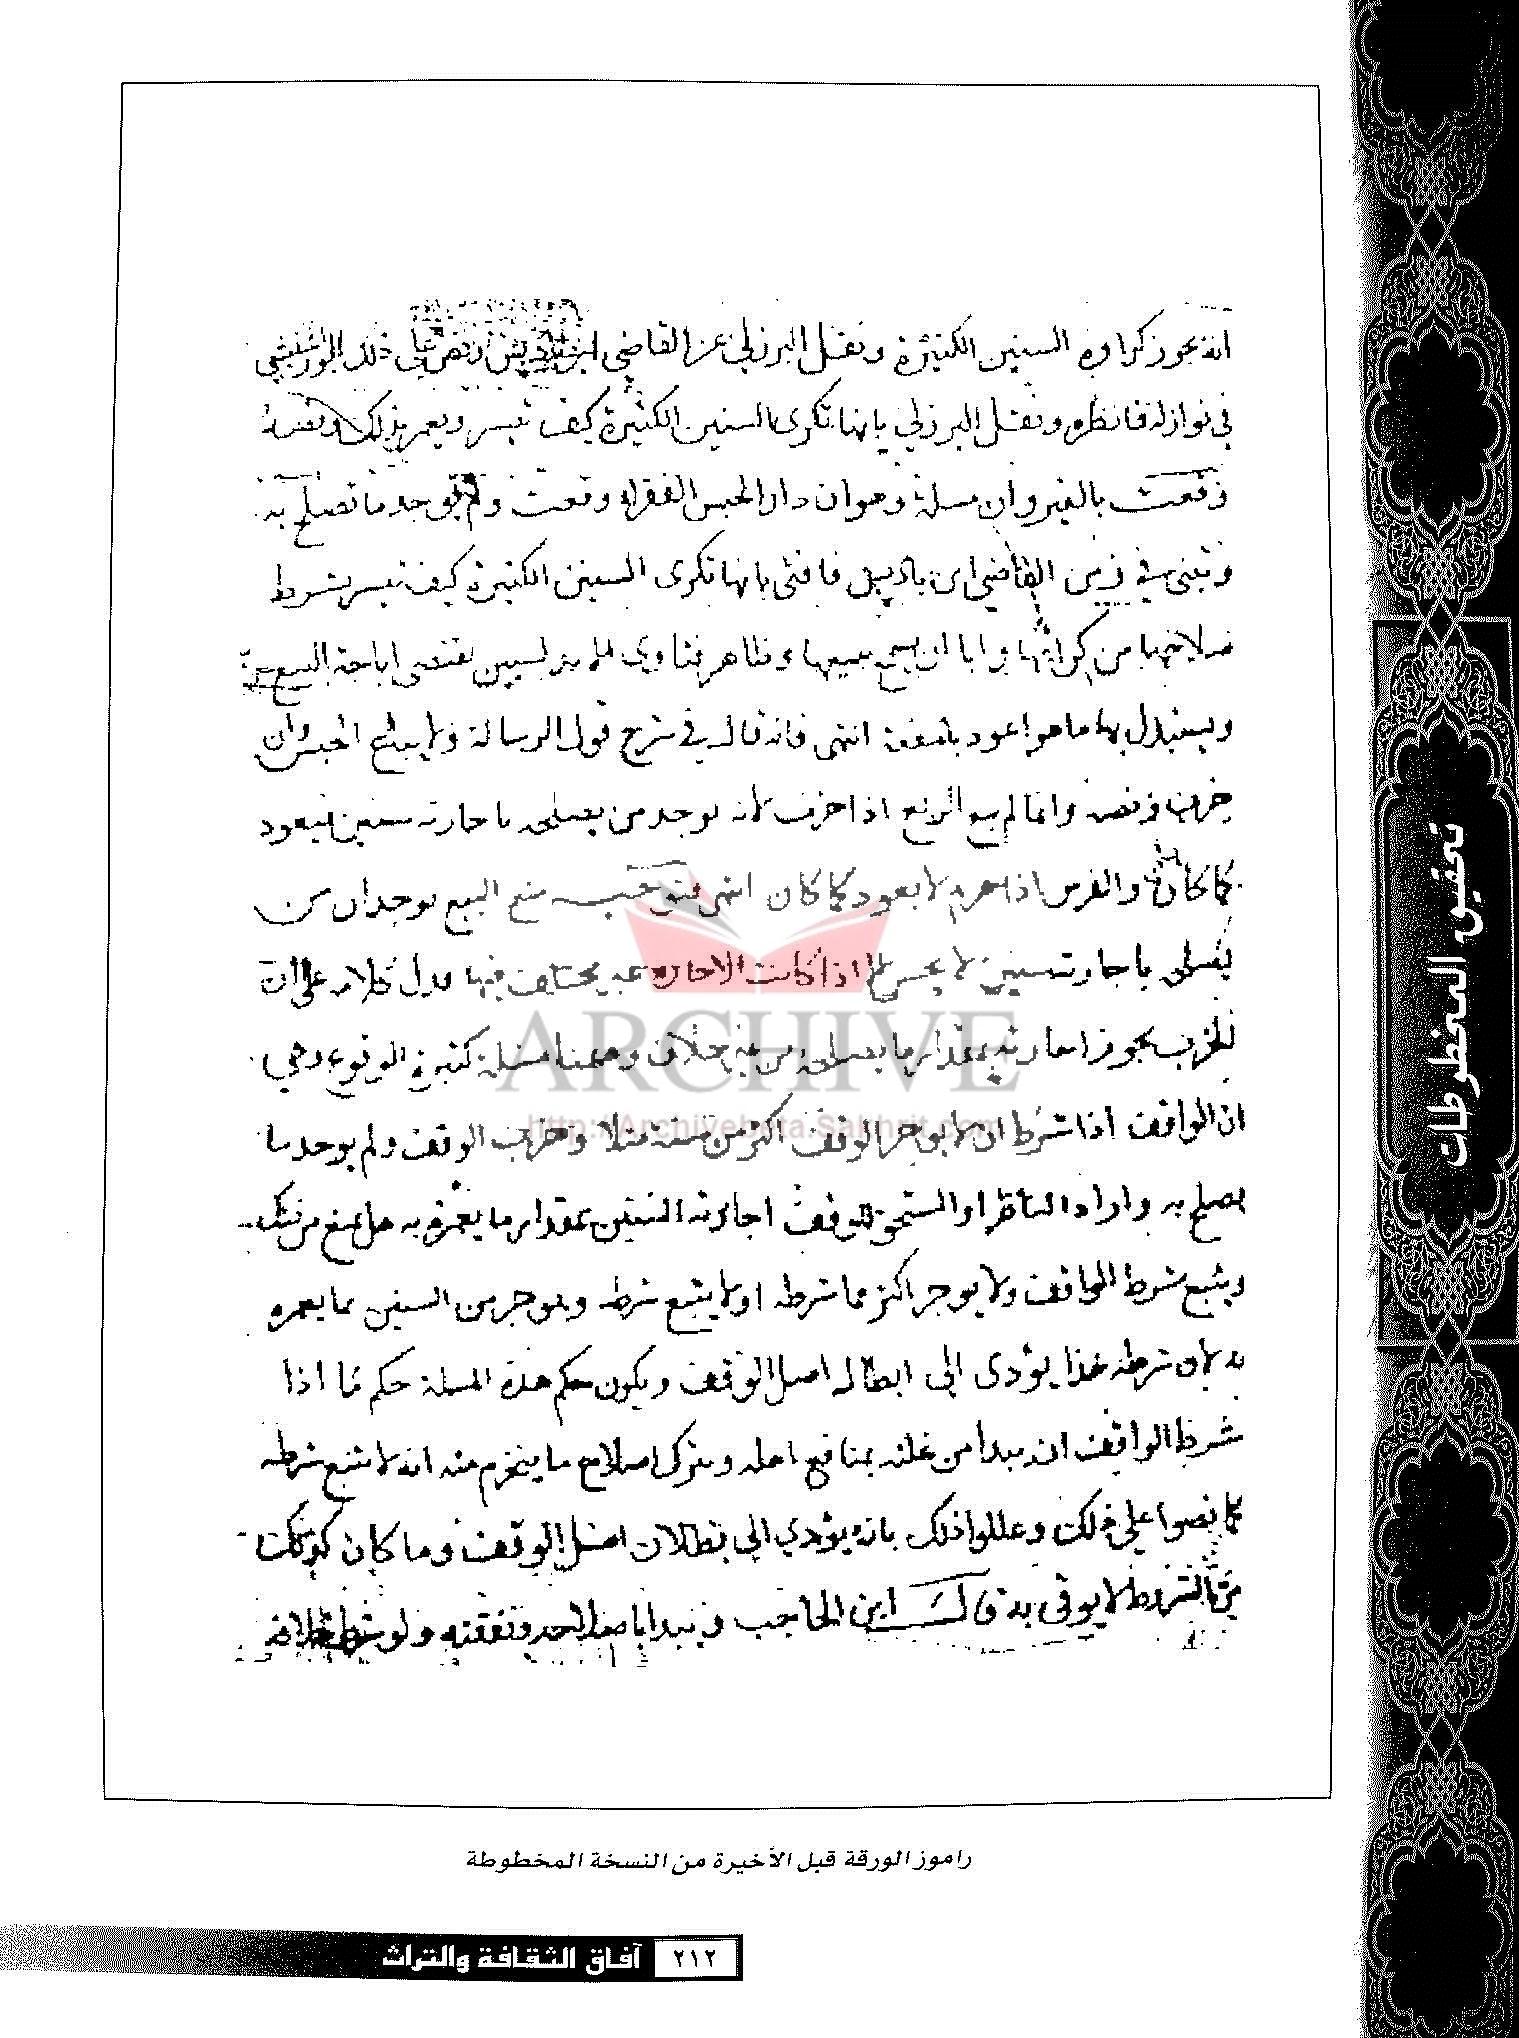 انه يجوز كراوه السنين الكثيرة ونقل البرزلي عن القاضي ابن باديس ونص على ذلك الونشريسي
في نوازله فانظره ونقل البرزلي بانها تكرى السنين الكثيرة كيف تيسر ويعمر بذلك ونصه
وقعت بالقيروان مسلة وهو ان دار الحبس الفقراء وقعت ولم يوجد ما تصلح به
وتبنى في زمن القاضي ابن باديس فافتى بانها تكرى السنين الكثيرة كيف تيسر بشرط
صلاحها من كرائها وابا ان يسمح ببيعها وظاهر فتاوى الاندلسيين تقتضى اباحة البيع
ويستبدل بها ما هو اعود بالمنفعة انتهى فانه قال في شرح قول الرسالة ولا يباع الحبس وان
خرب ونصه وانما لم يبع الربع اذا خرب لانه يوجد من يصلحه باجارته سنين فيعود
كما كان والفرس اذا هرم لا يعود كما كان انتهى منع البيع يوجدان من
يصلحه باجارته سنين لا يحسن اذا كانت الاجارة غير مختلف فيها فدل كلامه على ان
الخرب يجوز اجارته بمقدار ما يصلحه من غير خلاف وههنا مسئلة كثيرة الوقوع وهي
ان الواقف اذا شرط ان لا يوجر الوقف اكثر من سنة مثلا وخرب الوقف ولم يوجد ما
يصلح به واراد الناظر او المستحق للوقف اجارته السنين بمقدار ما يعمر به هل يمنع من ذلك
ويتبع شرط الواقف ولا يوجر اكثر مما شرطه او لا يتبع شرطه ويوجر من السنين مما يعمره
به لان شرطه هذا يؤدى الى ابطال اصل الوقف ويكون حكم هذه المسلة حكم ما اذا
شرط الواقف ان يبدا من غلته بمنافع اهله ويترك اصلاح ما ينخرم منه انه لا يتبع شرطه
كما نصوا على ذلك وعللوا ذلك بانه يؤدي الى بطلان اصل الوقف وما كان كذلك
من الشروط لا يوفى به قال ابن الحاجب ويبدا باصلاحه ونفقته ولو شرط خلافه
راموز الورقة قبل الأخيرة من النسخة المخطوطة
٢١٢ آفاق الثقافة والتراث
تحقيق المخطوطات
ARCHIVE
http://Archivebeta.Sakhrit.com